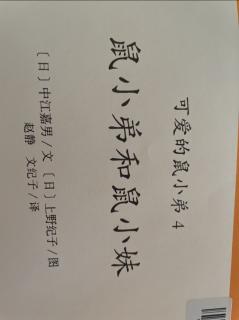 可爱的鼠小弟 4
鼠小弟和鼠小妹
〔日〕中江嘉男/文 〔日〕上野纪子/图
赵静 文纪子/译